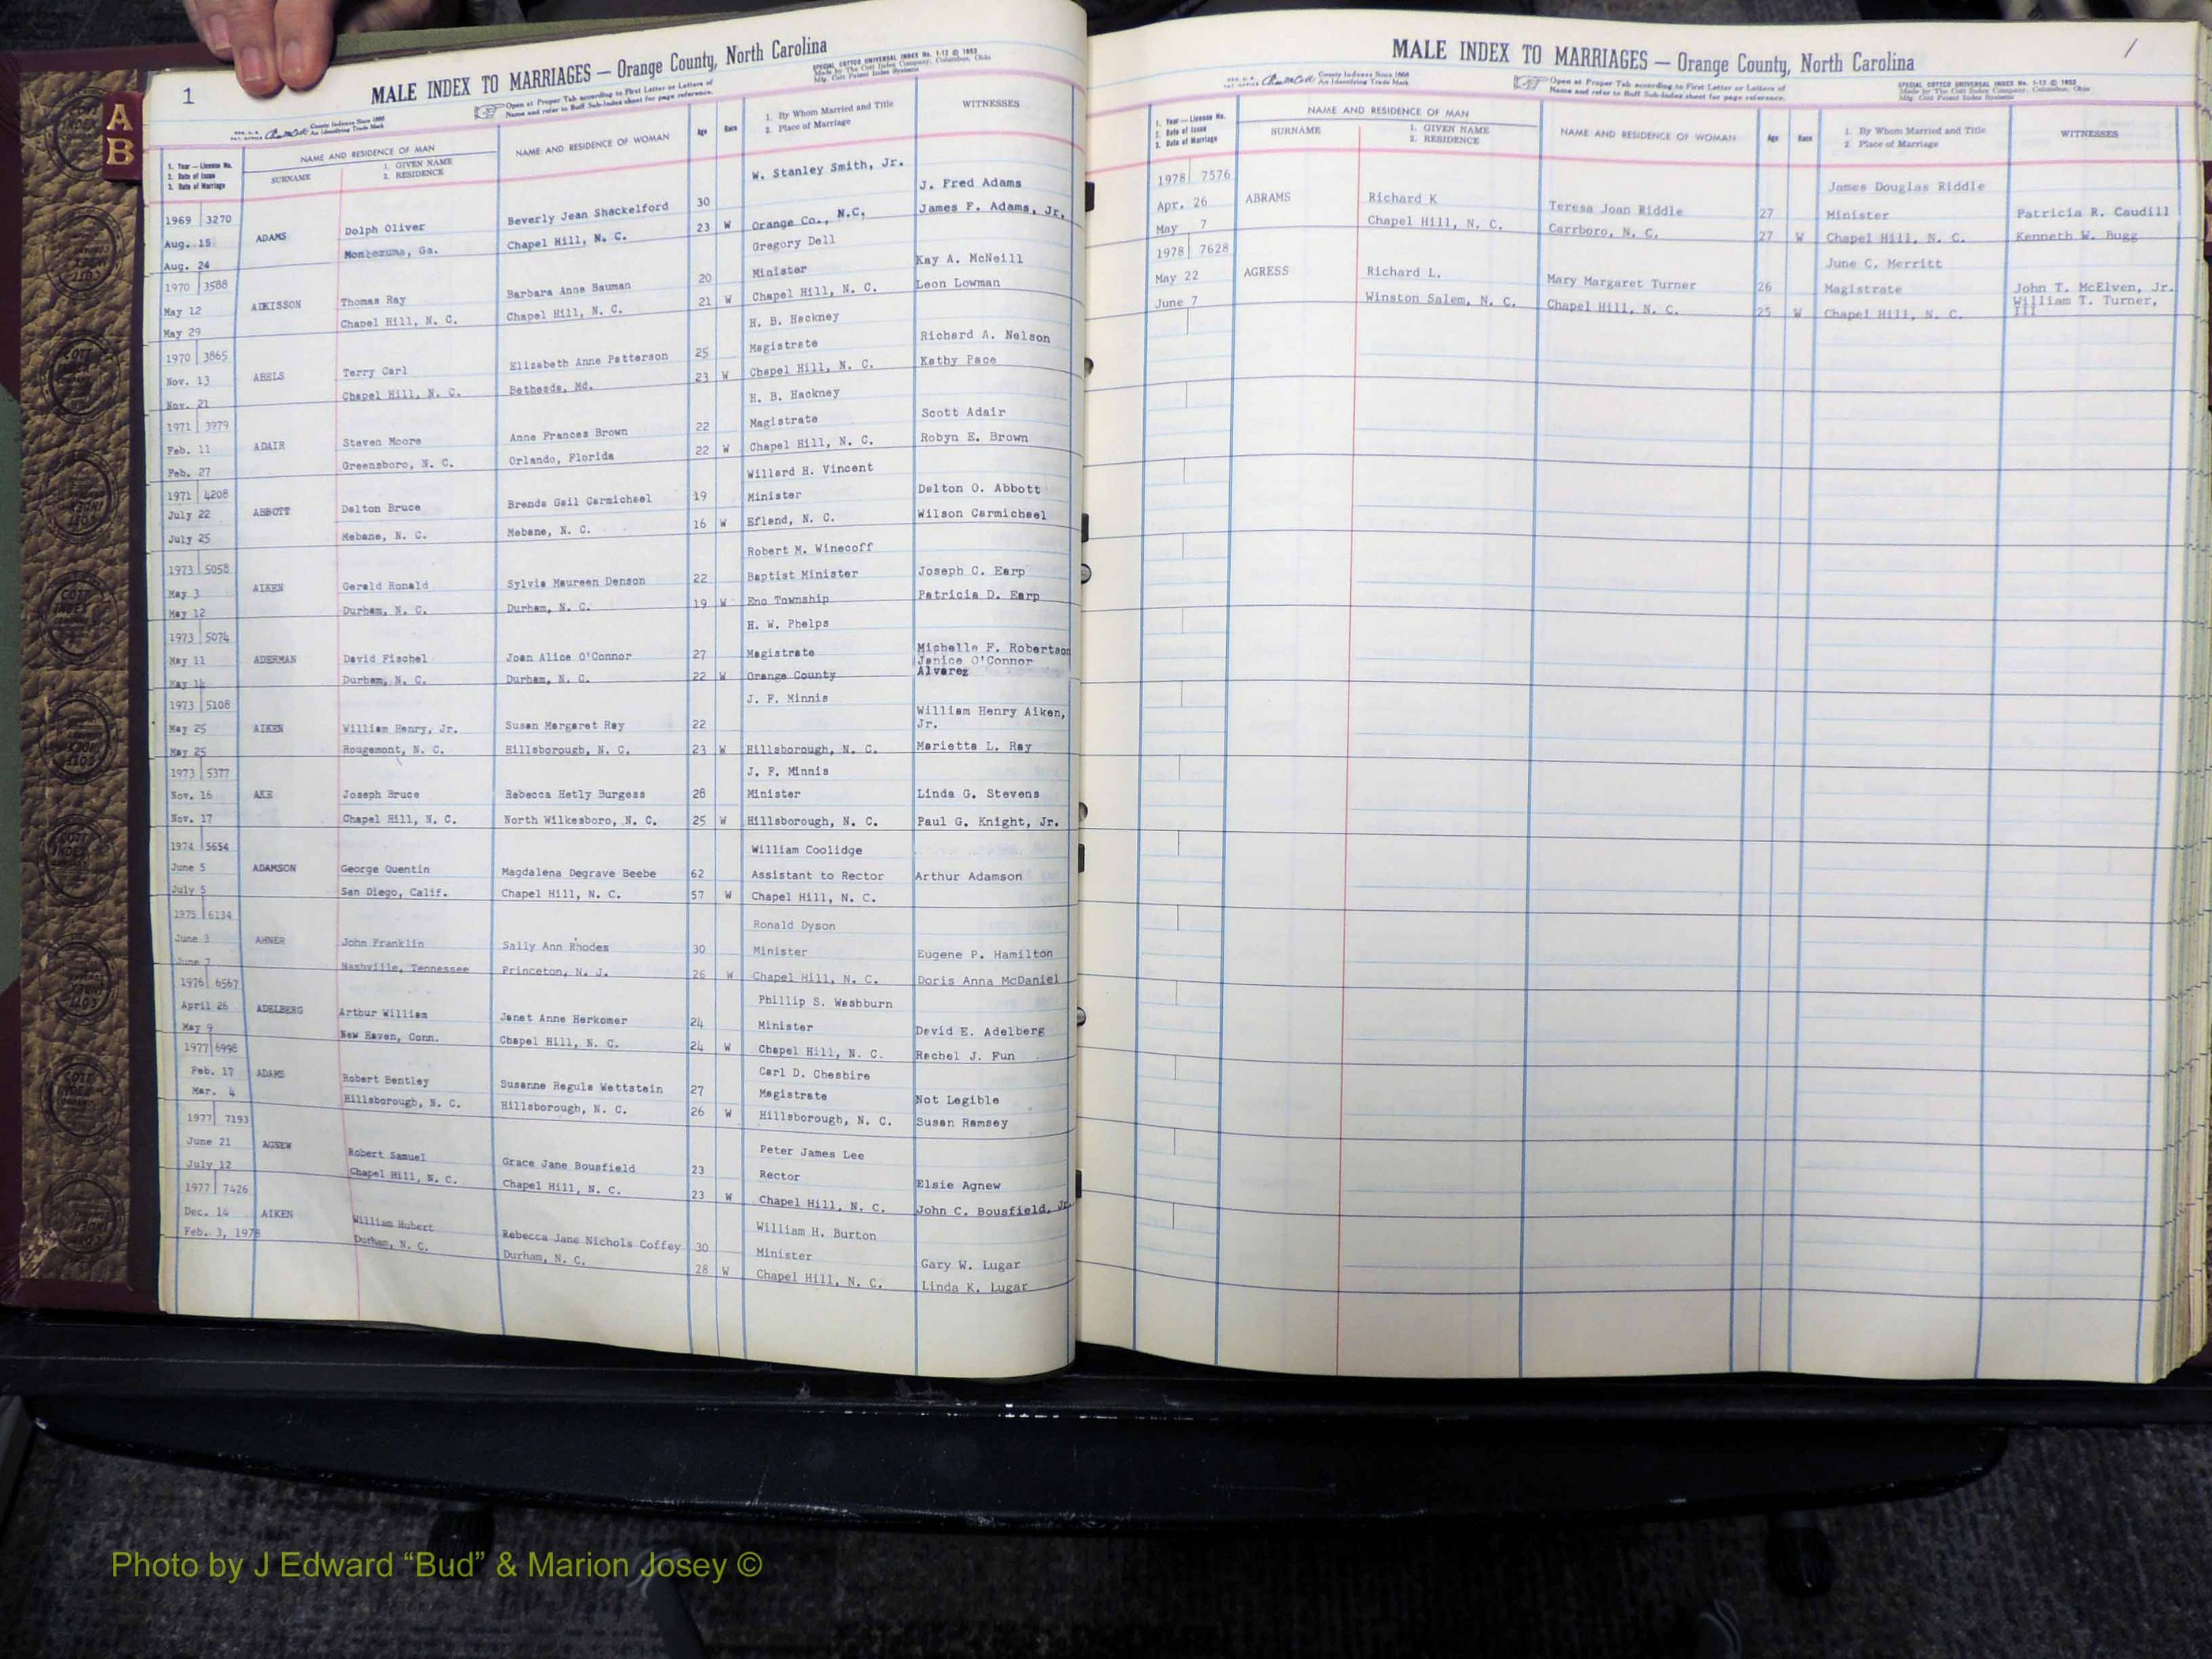 A
B
1
MALE INDEX TO MARRIAGES — Orange County, North Carolina
County Indexes Since 1888
An Identifying Trade Mark
Open at Proper Tab according to First Letter or Letters of
Name and refer to Buff Sub-Index sheet for page reference.
SPECIAL COTTCO UNIVERSAL INDEX No. 1-12 © 1952
Made by The Cott Index Company, Columbus, Ohio
Mfg. Cott Patent Index Systems
1. Year — License No.
2. Date of Issue
3. Date of Marriage
NAME AND RESIDENCE OF MAN
SURNAME
1. GIVEN NAME
2. RESIDENCE
NAME AND RESIDENCE OF WOMAN
Age
Race
1. By Whom Married and Title
2. Place of Marriage
WITNESSES
W. Stanley Smith, Jr.
1969 3270 Dolph Oliver Beverly Jean Shackelford 30 J. Fred Adams
Aug. 15 ADAMS Montezuma, Ga. Chapel Hill, N. C. 23 W Orange Co., N.C. James F. Adams, Jr.
Aug. 24
Gregory Dell
1970 3588 Thomas Ray Barbara Anne Bauman 20 Minister Kay A. McNeill
May 12 ADKISSON Chapel Hill, N. C. Chapel Hill, N. C. 21 W Chapel Hill, N. C. Leon Lowman
May 29
H. B. Hackney
1970 3865 Terry Carl Elizabeth Anne Patterson 25 Magistrate Richard A. Nelson
Nov. 13 ABELS Chapel Hill, N. C. Bethesda, Md. 23 W Chapel Hill, N. C. Kathy Pace
Nov. 21
H. B. Hackney
1971 3979 Steven Moore Anne Frances Brown 22 Magistrate Scott Adair
Feb. 11 ADAIR Greensboro, N. C. Orlando, Florida 22 W Chapel Hill, N. C. Robyn E. Brown
Feb. 27
Willard H. Vincent
1971 4208 Dalton Bruce Brenda Gail Carmichael 19 Minister Dalton O. Abbott
July 22 ABBOTT Mebane, N. C. Mebane, N. C. 16 W Efland, N. C. Wilson Carmichael
July 25
Robert M. Winecoff
1973 5058 Gerald Ronald Sylvia Maureen Denson 22 Baptist Minister Joseph C. Earp
May 3 AIKEN Durham, N. C. Durham, N. C. 19 W Eno Township Patricia D. Earp
May 12
H. W. Phelps
1973 5074
May 11 ADERMAN David Fischel Joan Alice O'Connor 27 Magistrate Michelle F. Robertson
Janice O'Connor
May 14 Durham, N. C. Durham, N. C. 22 W Orange County Alvarez
1973 5108 J. F. Minnis
William Henry Aiken,
May 25 AIKEN William Henry, Jr. Susan Margaret Ray 22 Jr.
May 25 Rougemont, N. C. Hillsborough, N. C. 23 W Hillsborough, N. C. Marietta L. Ray
1973 5377 J. F. Minnis
Nov. 16 AKE Joseph Bruce Rebecca Hetly Burgess 28 Minister Linda G. Stevens
Nov. 17 Chapel Hill, N. C. North Wilkesboro, N. C. 25 W Hillsborough, N. C. Paul G. Knight, Jr.
1974 5654 William Coolidge
June 5 ADAMSON George Quentin Magdalena Degrave Beebe 62 Assistant to Rector Arthur Adamson
July 5 San Diego, Calif. Chapel Hill, N. C. 57 W Chapel Hill, N. C.
1975 6134 Ronald Dyson
June 3 AHNER John Franklin Sally Ann Rhodes 30 Minister Eugene P. Hamilton
June 7 Nashville, Tennessee Princeton, N. J. 26 W Chapel Hill, N. C. Doris Anna McDaniel
1976 6567 Phillip S. Washburn
April 26 ADELBERG Arthur William Janet Anne Herkomer 24 Minister David E. Adelberg
May 9 New Haven, Conn. Chapel Hill, N. C. 24 W Chapel Hill, N. C. Rachel J. Fun
1977 6998 Carl D. Cheshire
Feb. 17 ADAMS Robert Bentley Susanne Regula Wettstein 27 Magistrate Not Legible
Mar. 4 Hillsborough, N. C. Hillsborough, N. C. 26 W Hillsborough, N. C. Susan Ramsey
1977 7193 Peter James Lee
June 21 AGNEW Robert Samuel Grace Jane Bousfield 23 Rector Elsie Agnew
July 12 Chapel Hill, N. C. Chapel Hill, N. C. 23 W Chapel Hill, N. C. John C. Bousfield, Jr.
1977 7426 William H. Burton
Dec. 14 AIKEN William Hubert Rebecca Jane Nichols Coffey 30 Minister Gary W. Lugar
Feb. 3, 1978 Durham, N. C. Durham, N. C. 28 W Chapel Hill, N. C. Linda K. Lugar
1
MALE INDEX TO MARRIAGES — Orange County, North Carolina
County Indexes Since 1888
An Identifying Trade Mark
Open at Proper Tab according to First Letter or Letters of
Name and refer to Buff Sub-Index sheet for page reference.
SPECIAL COTTCO UNIVERSAL INDEX No. 1-12 © 1952
Made by The Cott Index Company, Columbus, Ohio
Mfg. Cott Patent Index Systems
1. Year — License No.
2. Date of Issue
3. Date of Marriage
NAME AND RESIDENCE OF MAN
SURNAME
1. GIVEN NAME
2. RESIDENCE
NAME AND RESIDENCE OF WOMAN
Age
Race
1. By Whom Married and Title
2. Place of Marriage
WITNESSES
1978 7576 James Douglas Riddle
Apr. 26 ABRAMS Richard K Teresa Joan Riddle 27 Minister Patricia R. Caudill
May 7 Chapel Hill, N. C. Carrboro, N. C. 27 W Chapel Hill, N. C. Kenneth W. Bugg
1978 7628 June C. Merritt
May 22 AGRESS Richard L. Mary Margaret Turner 26 Magistrate John T. McElven, Jr.
William T. Turner,
June 7 Winston Salem, N. C. Chapel Hill, N. C. 25 W Chapel Hill, N. C. III
Photo by J Edward “Bud” & Marion Josey ©